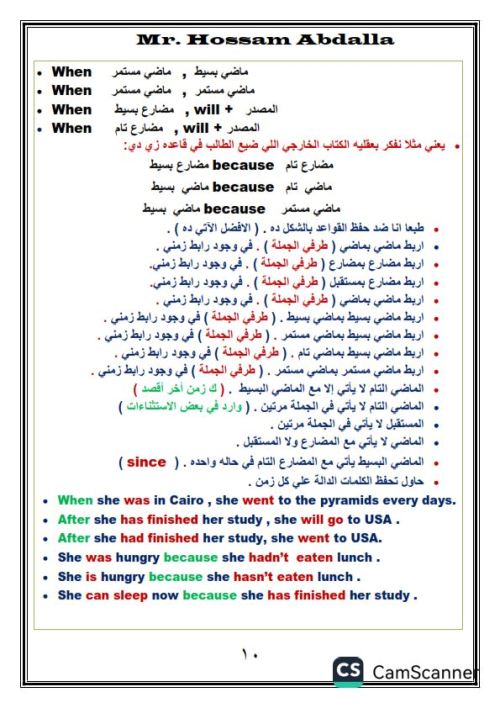 Mr. Hossam Abdalla
• When ماضي مستمر , ماضي بسيط
• When ماضي مستمر , ماضي مستمر
• When مضارع بسيط , will + المصدر
• When مضارع تام , will + المصدر
• يعني مثلا نفكر بعقليه الكتاب الخارجي اللي ضيع الطالب في قاعده زي دي:
مضارع تام because مضارع بسيط
ماضي تام because ماضي بسيط
ماضي مستمر because ماضي بسيط
• طبعا انا ضد حفظ القواعد بالشكل ده . ( الافضل الآتي ده ) .
• اربط ماضي بماضي ( طرفي الجملة ) . في وجود رابط زمني .
• اربط مضارع بمضارع ( طرفي الجملة ) . في وجود رابط زمني.
• اربط مضارع بمستقبل ( طرفي الجملة ) . في وجود رابط زمني.
• اربط ماضي بماضي ( طرفي الجملة ) . في وجود رابط زمني .
• اربط ماضي بسيط بماضي بسيط . ( طرفي الجملة ) في وجود رابط زمني .
• اربط ماضي بسيط بماضي مستمر . ( طرفي الجملة ) في وجود رابط زمني .
• اربط ماضي بسيط بماضي تام . ( طرفي الجملة ) في وجود رابط زمني .
• اربط ماضي مستمر بماضي مستمر . ( طرفي الجملة ) في وجود رابط زمني .
• الماضي التام لا يأتي إلا مع الماضي البسيط . ( ك زمن أخر أقصد )
• الماضي التام لا يأتي في الجملة مرتين . ( وارد في بعض الاستثناءات )
• المستقبل لا يأتي في الجملة مرتين .
• الماضي لا يأتي مع المضارع ولا المستقبل .
• الماضي البسيط يأتي مع المضارع التام في حاله واحده . ( since )
• حاول تحفظ الكلمات الدالة علي كل زمن .
• When she was in Cairo , she went to the pyramids every days.
• After she has finished her study , she will go to USA .
• After she had finished her study, she went to USA.
• She was hungry because she hadn't eaten lunch .
• She is hungry because she hasn't eaten lunch .
• She can sleep now because she has finished her study .
١٠
CS CamScanner